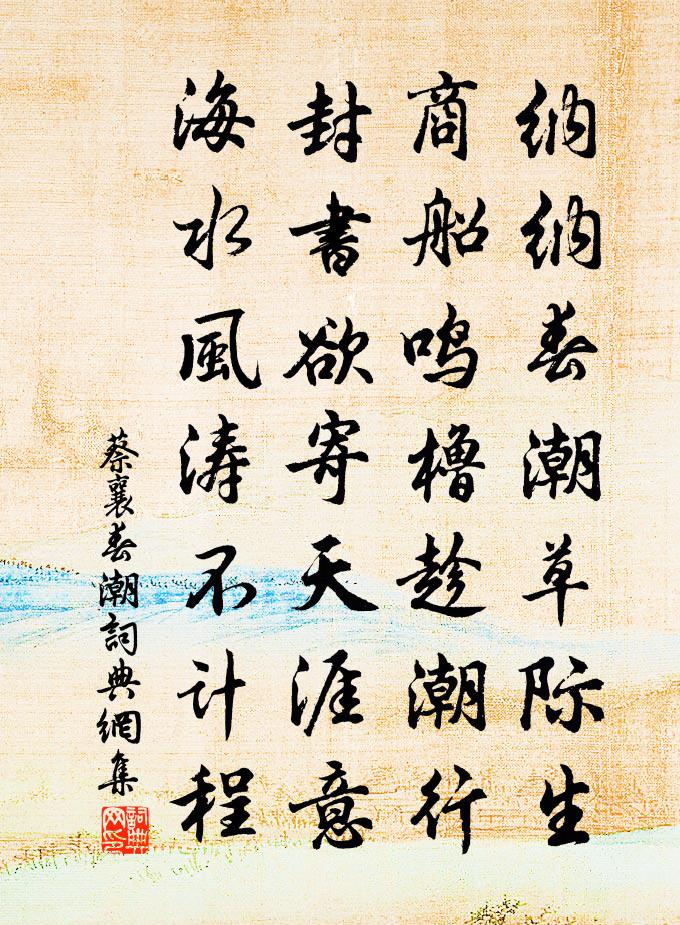 纳纳春潮草际生
商船鸣橹趁潮行
封書欲寄天涯意
海水風涛不计程
蔡襄春潮詞典網集
詞典网印